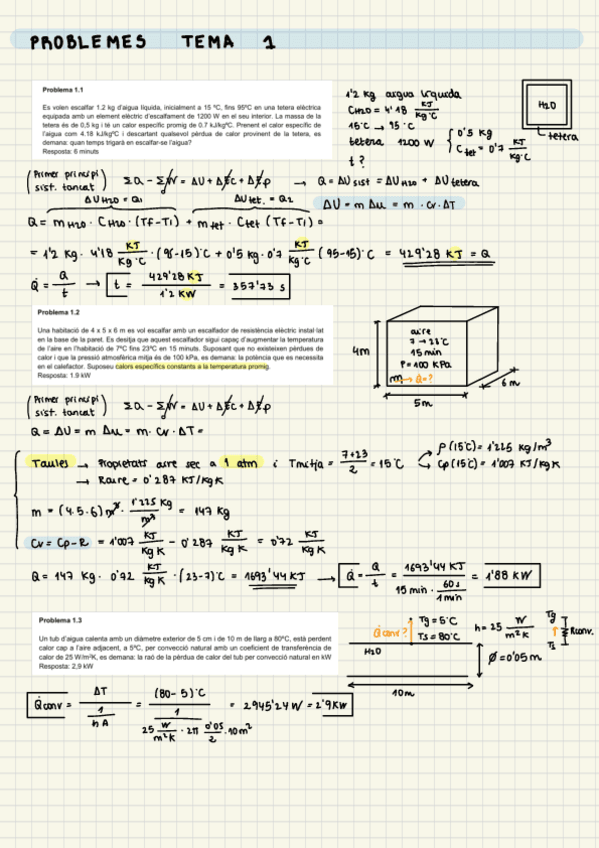 PROBLEMES TEMA 1
Problema 1.1
Es volen escalfar 1.2 kg d'aigua líquida, inicialment a 15 ºC, fins 95ºC en una tetera elèctrica
equipada amb un element elèctric d'escalfament de 1200 W en el seu interior. La massa de la
tetera és de 0,5 kg i té un calor específic promig de 0.7 kJ/kgºC. Prenent el calor específic de
l'aigua com 4.18 kJ/kgºC i descartant qualsevol pèrdua de calor provinent de la tetera, es
demana: quan temps trigarà en escalfar-se l'aigua?
Resposta: 6 minuts
1'2 Kg aigua líquida
CH2O = 4'18 KJ/Kg·ºC
15ºC → 95ºC
tetera 1200 W { 0'5 Kg
Ctet = 0'7 KJ/Kg·ºC
t?
H2O
tetera
(Primer principi sist. tancat) ΣQ - ΣW = ΔU + ΔEc + ΔEp → Q = ΔU sist = ΔU H2O + ΔU tetera
ΔU H2O = Q1 ΔU tet. = Q2 ΔU = m Δu = m · cv · ΔT
Q = m H2O · C H2O · (Tf-Ti) + m tet · Ctet (Tf-Ti) =
= 1'2 Kg · 4'18 KJ/Kg·ºC · (95-15)ºC + 0'5 Kg · 0'7 KJ/Kg·ºC (95-15)ºC = 429'28 KJ = Q
Q̇ = Q/t → t = 429'28 KJ / 1'2 KW = 357'73 s
Problema 1.2
Una habitació de 4 x 5 x 6 m es vol escalfar amb un escalfador de resistència elèctric instal·lat
en la base de la paret. Es desitja que aquest escalfador sigui capaç d'augmentar la temperatura
de l'aire en l'habitació de 7ºC fins 23ºC en 15 minuts. Suposant que no existeixen pèrdues de
calor i que la pressió atmosfèrica mitja és de 100 kPa, es demana: la potència que es necessita
en el calefactor. Suposeu calors específics constants a la temperatura promig.
Resposta: 1.9 kW
aire
7 → 23ºC
15 min
P=100 KPa
Q̇=?
4m
5m
6m
(Primer principi sist. tancat) ΣQ - ΣW = ΔU + ΔEc + ΔEp
Q = ΔU = m Δu = m · cv · ΔT =
Taules → Propietats aire sec a 1 atm i Tmitja = 7+23/2 = 15ºC → ρ(15ºC) = 1'225 kg/m³
→ Cp(15ºC) = 1'007 KJ/Kg K
→ Raire = 0'287 KJ/Kg K
m = (4·5·6) m³ · 1'225 Kg/m³ = 147 Kg
Cv = Cp-R = 1'007 KJ/Kg K - 0'287 KJ/Kg K = 0'72 KJ/Kg K
Q = 147 Kg · 0'72 KJ/Kg K · (23-7)ºC = 1693'44 KJ → Q̇ = Q/t = 1693'44 KJ / 15 min · 60s/1min = 1'88 KW
Problema 1.3
Un tub d'aigua calenta amb un diàmetre exterior de 5 cm i de 10 m de llarg a 80ºC, està perdent
calor cap a l'aire adjacent, a 5ºC, per convecció natural amb un coeficient de transferència de
calor de 25 W/m²K, es demana: la raó de la pèrdua de calor del tub per convecció natural en kW
Resposta: 2,9 kW
Q̇conv? Tg = 5ºC
Ts = 80ºC
h = 25 W/m²K
Tg
Rconv.
Ts
H2O
Ø = 0'05 m
10m
Q̇conv = ΔT / 1/hA = (80-5)ºC / 1/25 W/m²K · 2π 0'05/2 · 10m² = 2945'24 W = 2'9KW